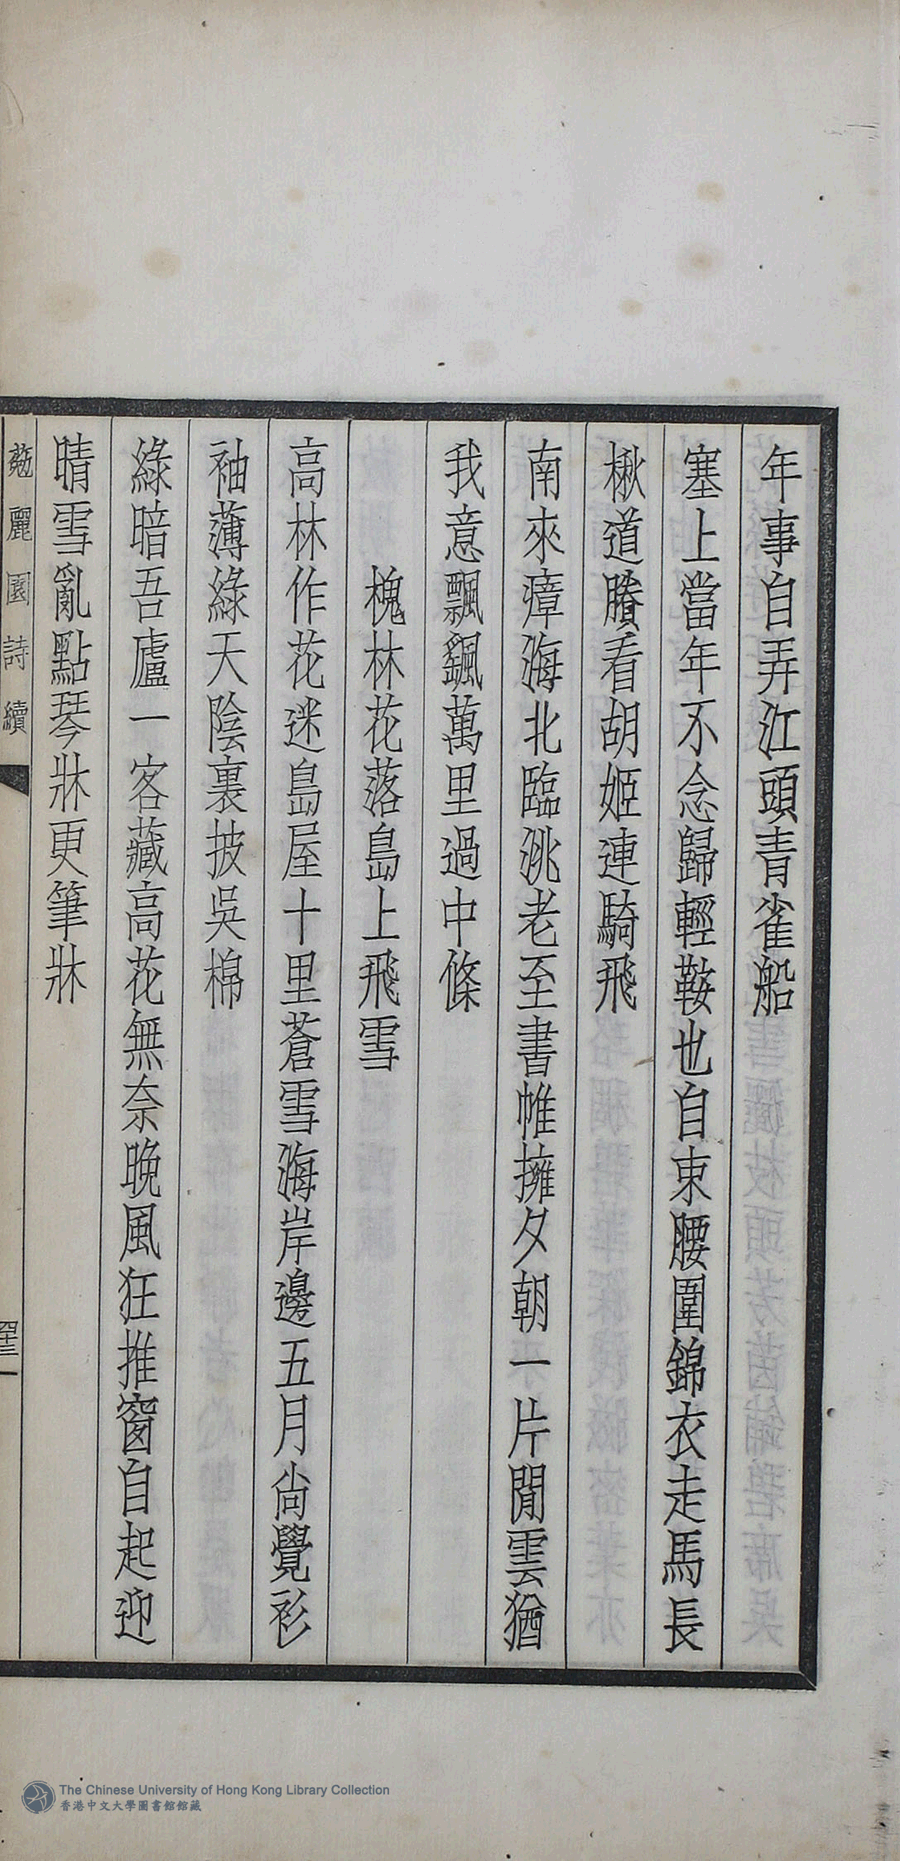 年事自弄江頭青雀船
塞上當年不念歸輕鞍也自束腰圍錦衣走馬長
楸道賸看胡姬連騎飛
南來瘴海北臨洮老至書帷擁夕朝一片閒雲猶
我意飄颻萬里過中條
槐林花落島上飛雪
高林作花迷島屋十里蒼雪海岸邊五月尙覺衫
袖薄綠天陰裏披吳棉
綠暗吾廬一客藏高花無奈晚風狂推窗自起迎
晴雪亂點琴牀更筆牀
麗園詩續
The Chinese University of Hong Kong Library Collection
香港中文大學圖書館館藏